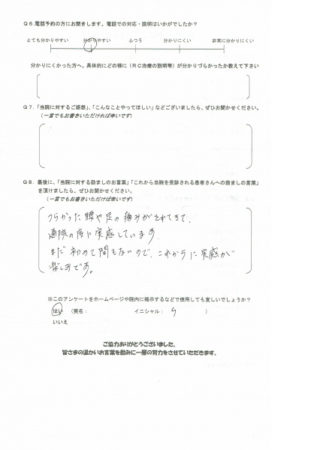 Q6.電話予約の方にお聞きします。電話での対応・説明はいかがでしたか？
とても分かりやすい　分かりやすい　ふつう　分かりにくい　非常に分かりにくい
分かりにくかった方へ、具体的にどの様に（RC治療の説明等）が分かりづらかったか教えて下さい
Q7.「当院に対するご感想」、「こんなことやってほしい」などございましたら、ぜひお聞かせください。
（一言でもお書きいただければ幸いです）
Q8.最後に、「当院に対する励ましのお言葉」「これから当院を受診される患者さんへの励ましの言葉」
を頂けましたら、ぜひお聞かせください。
（一言でもお書きいただけば幸いです）
つらかった腰や足の痛みがとれてきて、
通院の
実感しています。
まだ初めて間もないので、これからに実感が
楽しみです。
※このアンケートをホームページや院内に掲示するなどで使用しても宜しいでしょうか？
はい　（実名：　イニシャル：　）
いいえ
ご協力ありがとうございました。
皆さまの温かいお言葉を励みに一層の努力をさせていただきます。